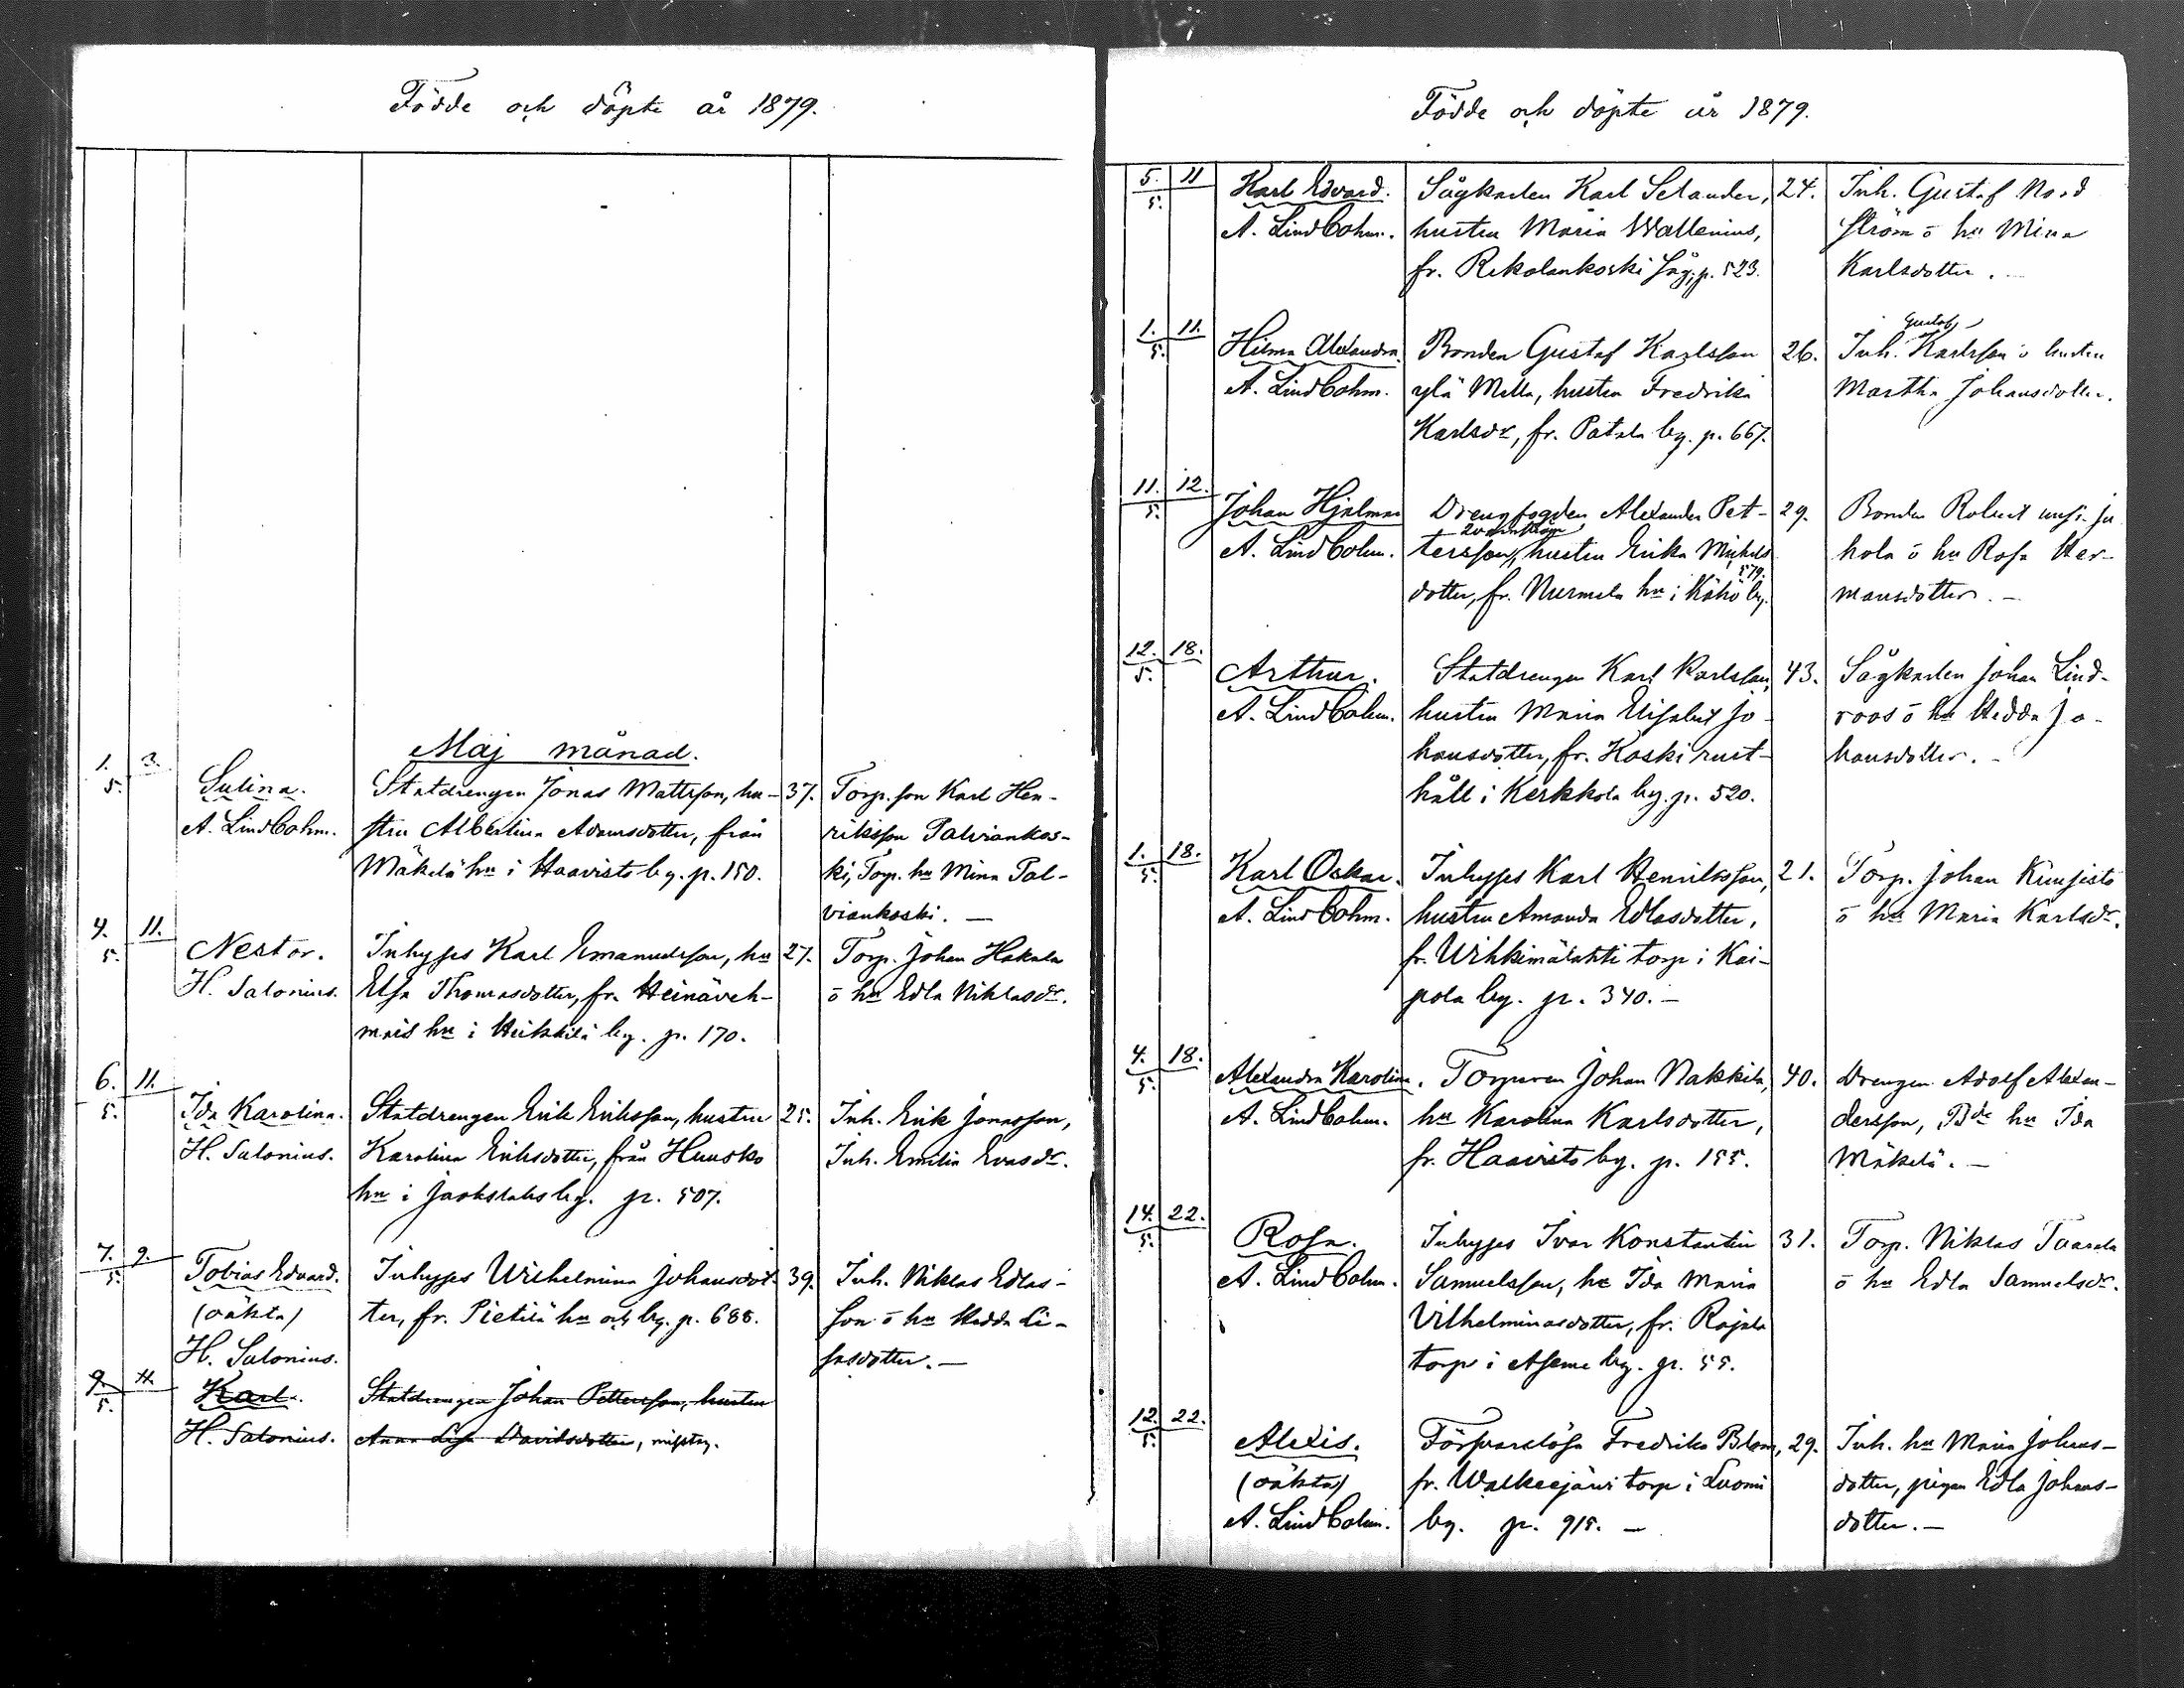 Födde och döpte år 1879.
Maj månad.
1. 3.
5.
Sulina.
A. Lindbohm.
Statdrengen Jonas Mattsson, hu-
stru Albertina Adamsdotter, från
Mäkelä hn i Haavisto by. p. 150.
37.
Torp. son Karl Hen-
riksson Palviankos-
ki, Torp. hu Mina Pal-
viankoski. —
4. 11.
5.
Nestor.
H. Salonius.
Inhyses Karl Emanuelsson, hu
Elsa Thomasdotter, fr. Heinäveh-
mais hn i Heikkilä by. p. 170.
27.
Torp. Johan Hakala
o hu Edla Niklasdr.
6. 11.
5.
Ida Karolina.
H. Salonius.
Statdrengen Erik Eriksson, hustru
Karolina Eriksdotter, från Huusko
hn i Jaokslahs by. p. 507.
25.
Inh. Erik Jonasson,
Inh. Emilia Evasdr.
7. 9.
5.
Tobias Edvard.
(oäkta)
H. Salonius.
Inhyses Wilhelmina Johansdot-
ter, fr. Pietilä hn och by. p. 688.
39.
Inh. Niklas Edlas-
son o hu Hedda Li-
sasdotter. —
9. 11.
5.
Karl.
H. Salonius.
Statdrengen Johan Pettersson, hustru
Anna Lisa Davidsdotter,
Födde och döpte år 1879.
5. 11
5.
Karl Edvard.
A. Lindbohm.
Sågkarlen Karl Selander,
hustru Maria Wallenius,
fr. Rekolankoski såg, p. 523.
24.
Inh. Gustaf Nord
ström o hu Mina
Karlsdotter. —
1. 11.
5.
Hilma Alexandra.
A. Lindbohm.
Bonden Gustaf Karlsson
ylä Mella, hustru Fredrika
Karlsdr, fr. Patala by. p. 667.
26.
Gustaf
Inh. Karlsson o hustru
Martha Johansdotter.
11. 12.
5.
Johan Hjalmar
A. Lindbohm.
Drengfogden Alexander Pet-
tersson, hustru Erika Mickels
579.
dotter, fr. Nurmela hn i Kähö by.
29.
Bonden Robert uusi Ju
hola o hu Rosa Her-
mansdotter. —
12. 18.
5.
Arthur.
A. Lindbohm.
Statdrengen Karl Karlsson,
hustru Maria Elisabet Jo-
hansdotter, fr. Koski rust-
håll i Kerkkola by. p. 520.
43.
Sågkarlen Johan Lind-
roos o hu Hedda Jo-
hansdotter. —
1. 18.
5.
Karl Oskar.
A. Lindbohm.
Inhyses Karl Henriksson,
hustru Amanda Edlasdotter,
fr. Wihkimälahti torp i Kai-
pola by. p. 340. —
21.
Torp. Johan Kuusisto
o hu Maria Karlsdr.
4. 18.
5.
Alexandra Karolina.
A. Lindbohm.
Torparen Johan Nakkila,
hu Karolina Karlsdotter,
fr. Haavisto by. p. 155.
40.
Drengen Adolf Alexan-
dersson, Bde hu Ida
Mäkelä. —
14. 22.
5.
Rosa.
A. Lindbohm.
Inhyses Ivar Konstantin
Samuelsson, hu Ida Maria
Vilhelminasdotter, fr. Rajala
torp i Aseme by. p. 55.
31.
Torp. Niklas Tuarala
o hu Edla Samuelsdr.
12. 22.
5.
Alexis.
(oäkta)
A. Lindbohm.
Försvarslösa Fredrika Blom,
fr. Walkeejärvi torp i Luomi
by. p. 915. —
29.
Inh. hu Maria Johans-
dotter, pigan Edla Johans-
dotter. —